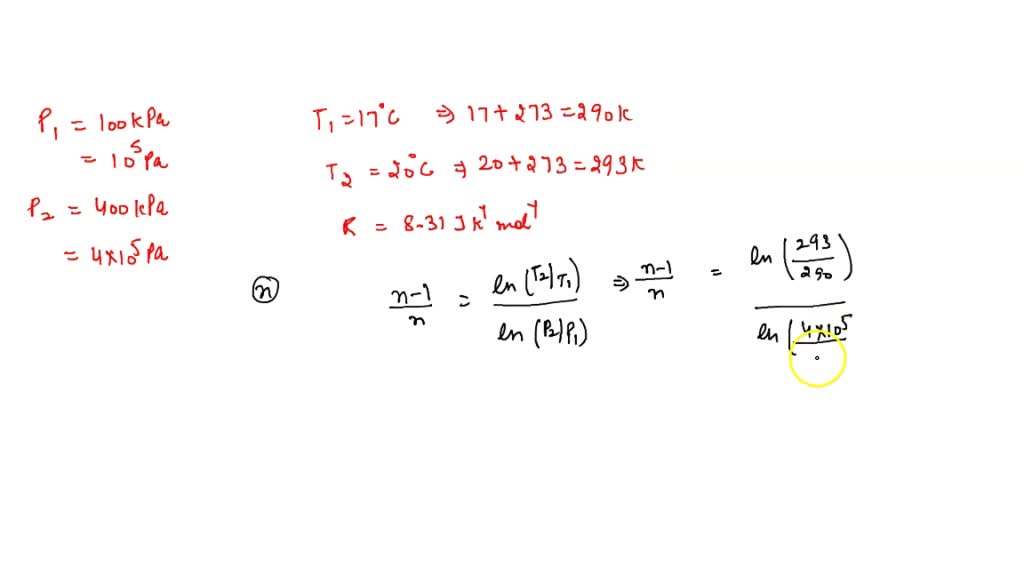 P₁ = 100kPa
= 10⁵ Pa
P₂ = 400kPa
= 4×10⁵ Pa
T₁ = 17°C ⇒ 17+273=290K
T₂ = 20°C ⇒ 20+273=293K
R = 8.31 J K⁻¹ mol⁻¹
(n) (n-1)/n = ln(T₂/T₁) / ln(P₂/P₁) ⇒ (n-1)/n = ln(293/290) / ln(4×10⁵